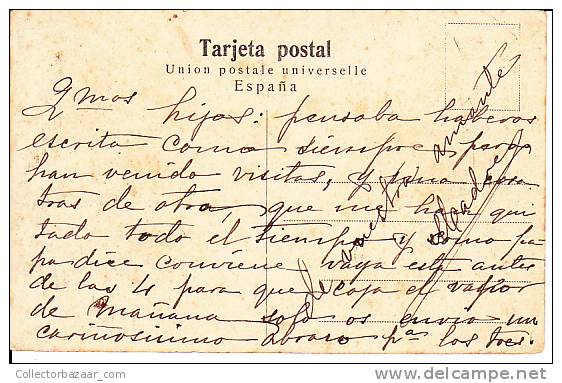 Tarjeta postal
Union postale universelle
España
Qmos hijos: pensaba haberos
escrito como siempre pero
han venido visitas, y una cosa
tras de otra, que me han qui
tado todo el tiempo y como pa
pa dice conviene vaya esta antes
de las 4 para que coja el vapor
de mañana solo os envio un
cariñosisimo abrazo pa los tres.
de vuestra amante
delcampe.net
CollectorBazaar_com